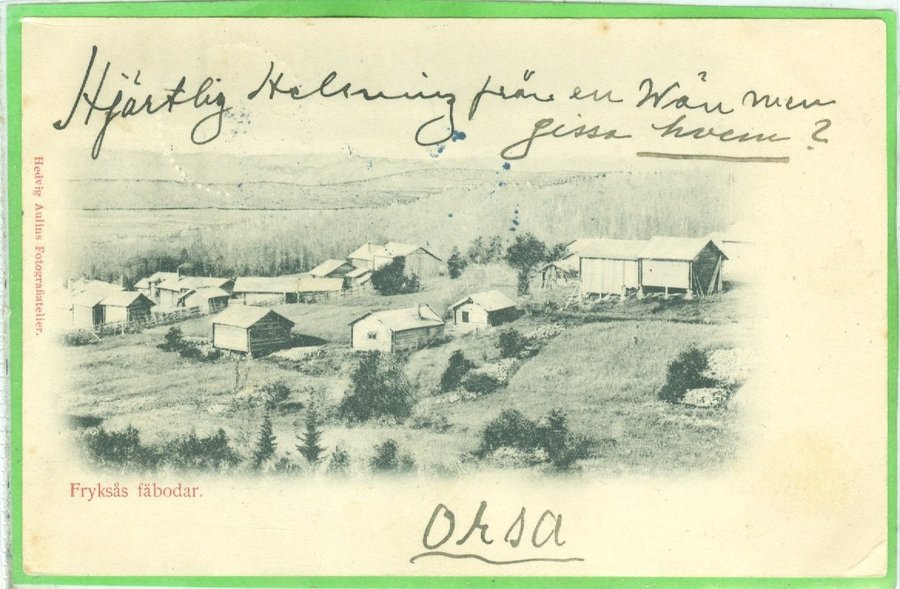 Hjärtlig Helsning från en Wän men
gissa hvem?
Hedvig Aulius Fotografiatelier.
Fryksås fäbodar.
Orsa